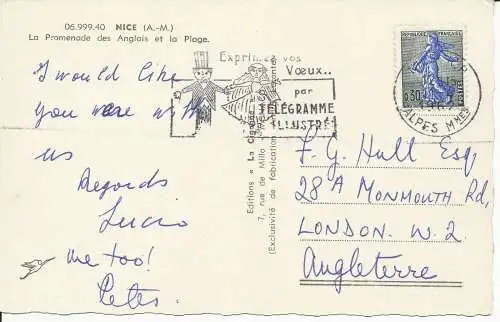 06.999.40 NICE (A.-M.)
La Promenade des Anglais et la Plage.
I would like
you were with
us
Regards
Lucio
me too!
Petes.
Exprimez vos
Vœux..
par
TÉLÉGRAMME
ILLUSTRÉ
RÉPUBLIQUE FRANÇAISE
0,30
ALPES MMES
Editions « La
7, rue de Milan
(Exclusivité de fabrication
F. G. Hull Esq
28A MONMOUTH RD,
LONDON. W. 2.
Angleterre